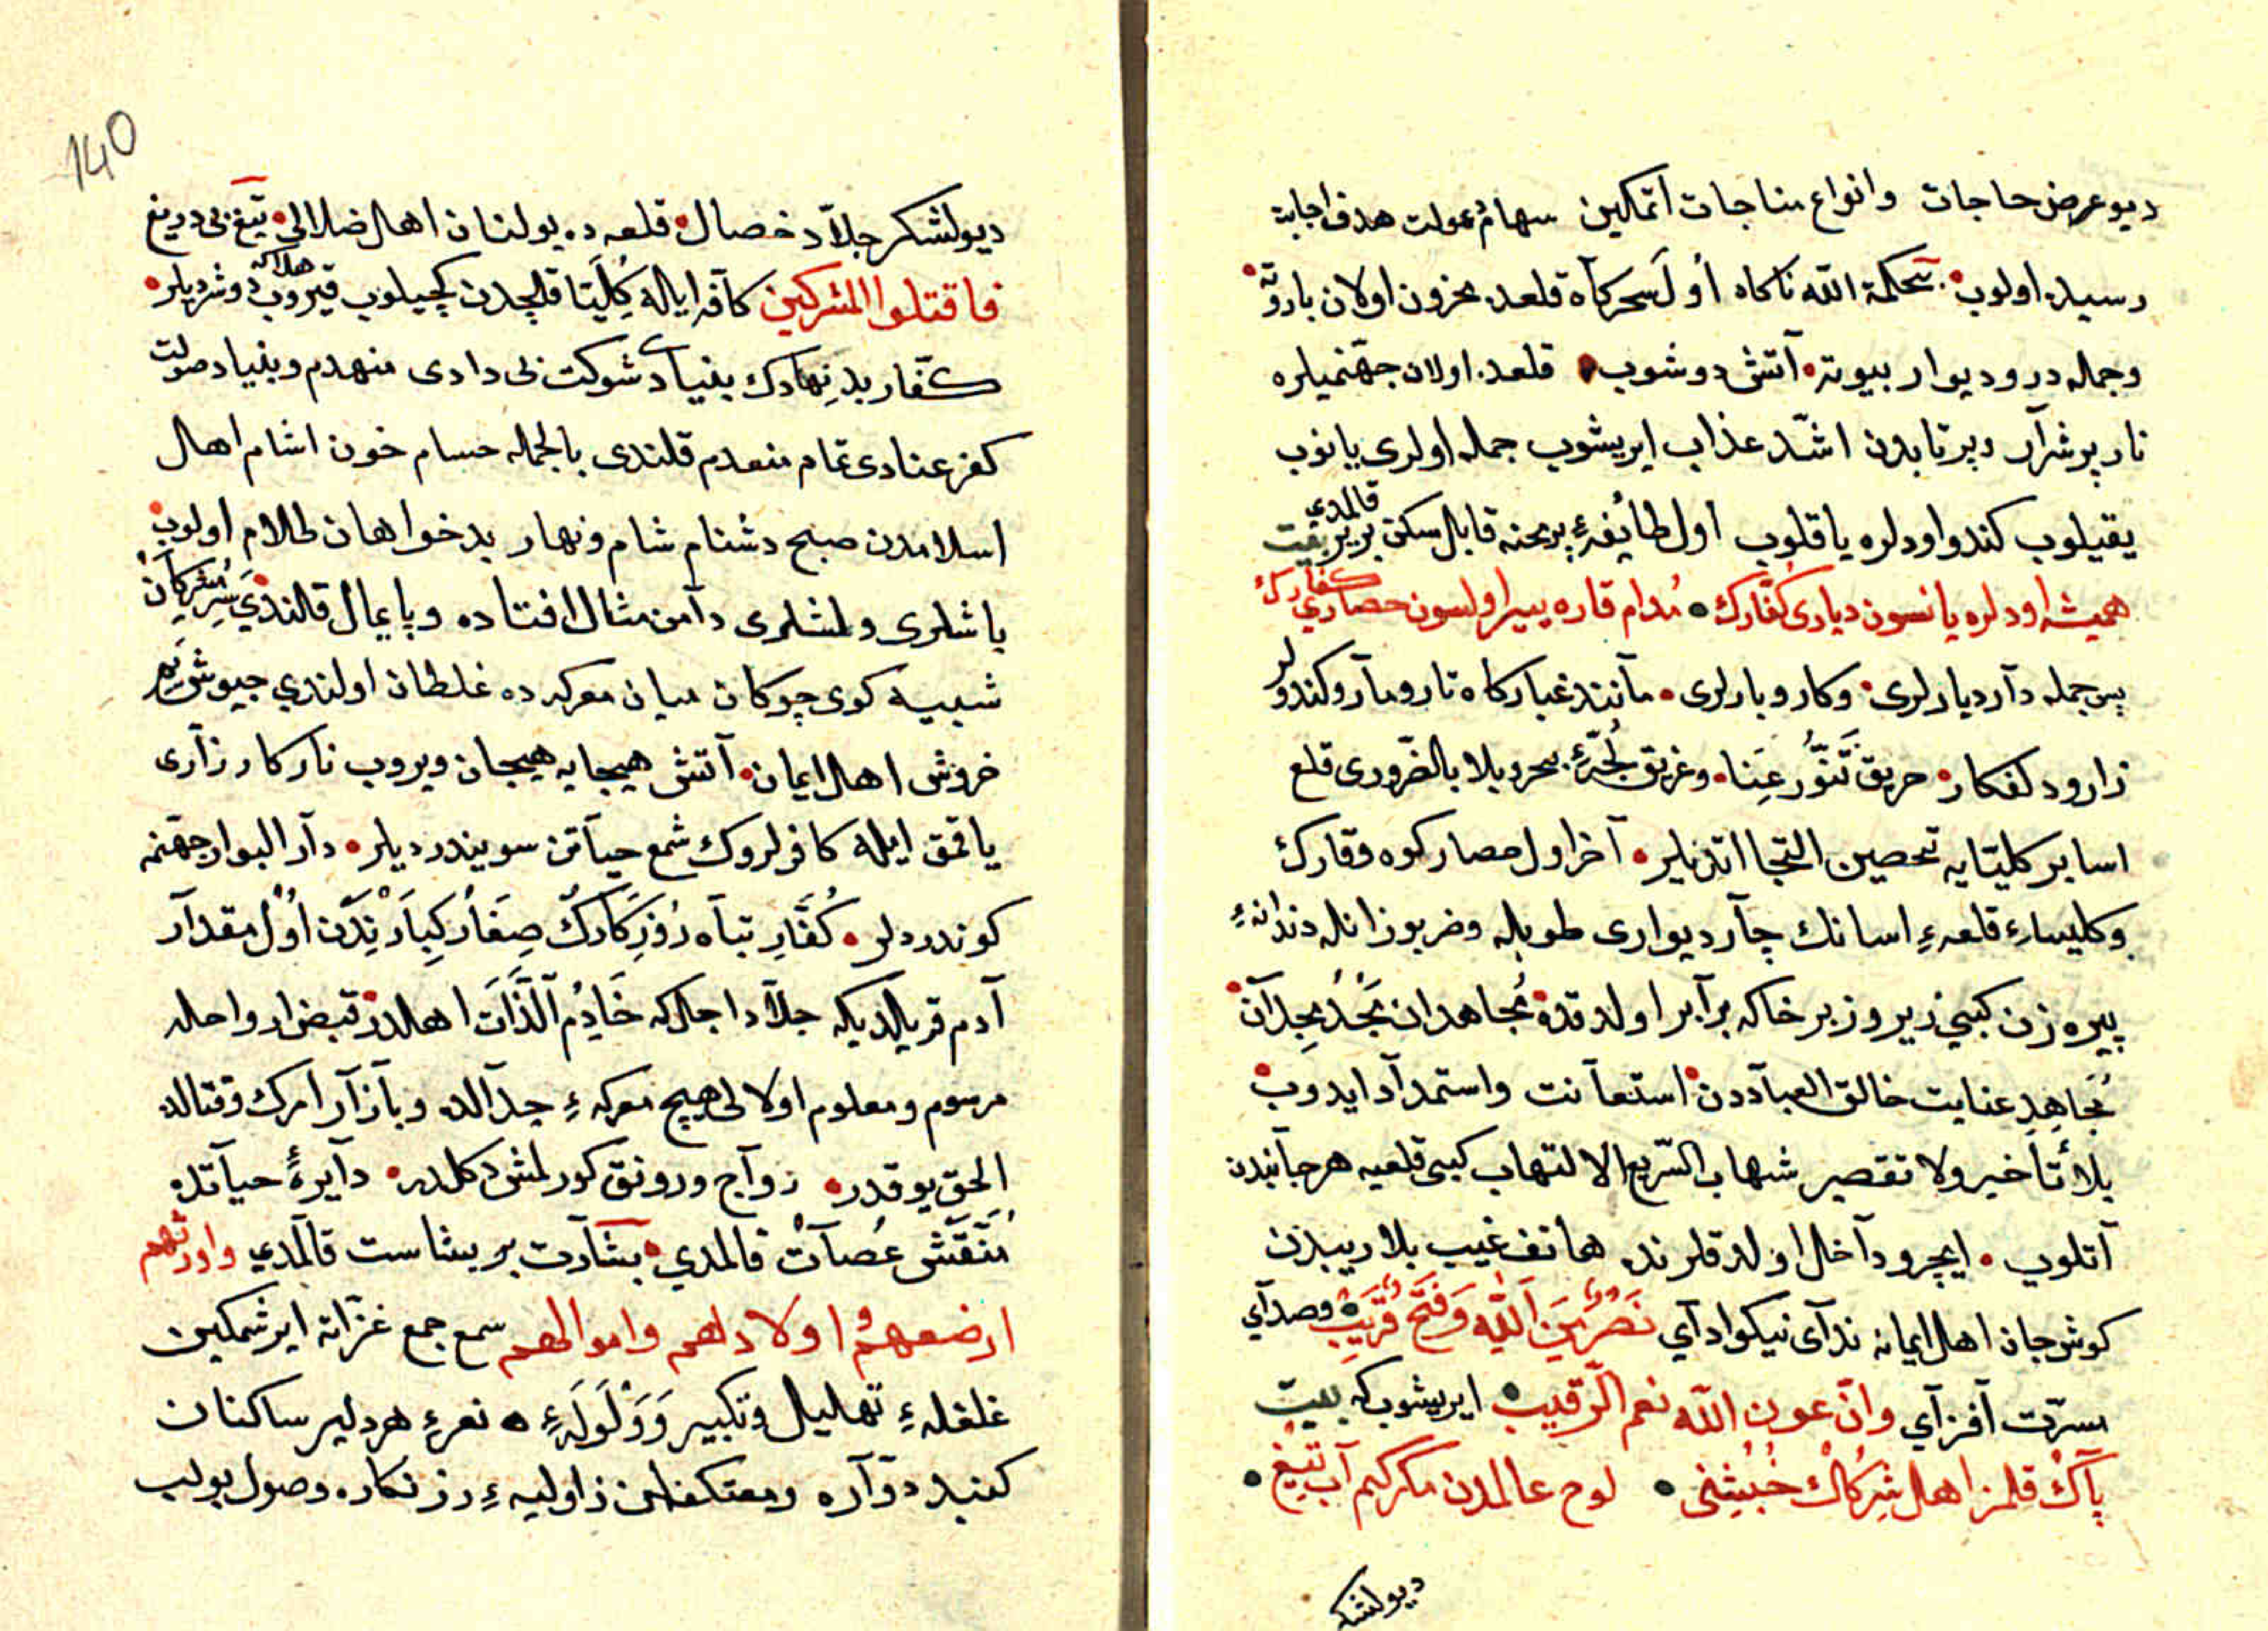 ديو عرض حاجات وانواع مناجات اتمكين سهام دعولرت هدف اجابته
رسيده اولوب بحكمة الله ناكاه اول سحركاه قلعه ده مخزون اولان باروته
وجمله در وديوار بيوته آتش دوشوب قلعه ده اولان جهنميلره
نار پر شرار وپر تابدن اشد عذاب ايريشوب جمله اولرى يانوب
يقيلوب كندو اودلره ياقلوب اول طايفهٔ پر محنه قابل سكن بر ير قالمدى بيت
هميشه اودلره يانسون ديارى كفارك مدام قاره يير اولسون حصارى كفارك
پس جمله دار ديارلرى وكار وبارلرى مانند غبار كاه تار ومار وكندولر
زار ودلفكار حريق تنور عنا وغريق لجهٔ بحر وبلا بالضرورى قلعه
اسا بر كليتايه تحصين التجا اتديلر آخر اول حصار كوه وقارك
وكليساء قلعهء اسانك چار ديوارى طوپله وضربوزانله دندانهء
پيره زن كبى زير وزبر خاكه برابر اولدقده مجاهدان بجد مجدان
مجاهد عنايت خالق العباددن استعانت واستمداد ايدوب
بلا تأخير ولا تقصير شهاب السريع الالتهاب كبى قلعيه هر جانبدن
آتلوب ايچرو داخل اولدقلرنده هاتف غيب بلا ريبدن
كوش جان اهل ايمانه نداى نيكو اداى نصر من الله وفتح قريب وصداى
مسرت آفزاى وان عون الله نعم الرقيب ايريشوب كه بيت
پاك قلمز اهل شركك خبيثنى لوح عالمدن مكركيم آب تيغ
ديو لشكر
140
ديو لشكر جلاد خصال قلعه ده بولنان اهل ضلالى تيغ بى دريغ
فاقتلوا المشركين كافه ايله كليتا قلچدن كچيلوب قيروب هلاكه دوشرديلر
كفار بد نهادك بنياد شوكت نى دادى منهدم وبنياد صولت
كفر عنادى تمام منعدم قلندى بالجمله حسام خون اشام اهل
اسلامدن صبح دشنام شام ونهار بدخواهان ظلام اولوب
باشلرى ولشلرى دامن مثال افتاده وپايمال قالندى سر مشركان
شبيه كوى چوكان ميان معركه ده غلطان اولندى جيوش بحر
خروش اهل ايمان آتش هيجايه هيجان ويروب نار كارزارى
ياقمق ايله كافرلروك شمع حياتن سويندرديلر دار البوار جهنمه
كوندرديلر كفار تباه روزكارك صغار كبارندن اول مقدار
آدم قريلديكه جلاد اجل كه خادم اللذات اهلدر قبض ارواحله
مرسوم ومعلوم اولالى هيچ معركهء جدالده وبازار مرك وقتالده
الحق يوقدر رواج ورونق كورلمش دكلدر دايرهٔ حياتده
منقش عصات قالمدى بشارت بر بشاست قالمدى واورثهم
ارضهم و اولادهم واموالهم سمع جمع غزاته ايرشمكين
غلغلهء تهليل وتكبير وولولهء نعرهء هر دلير ساكنان
كنبد دواره ومعتكفان زاوليهء زرنكاره وصول بولب